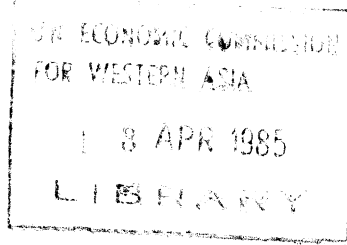 UN ECONOMIC COMMISSION
FOR WESTERN ASIA
1 8 APR 1985
LIBRARY